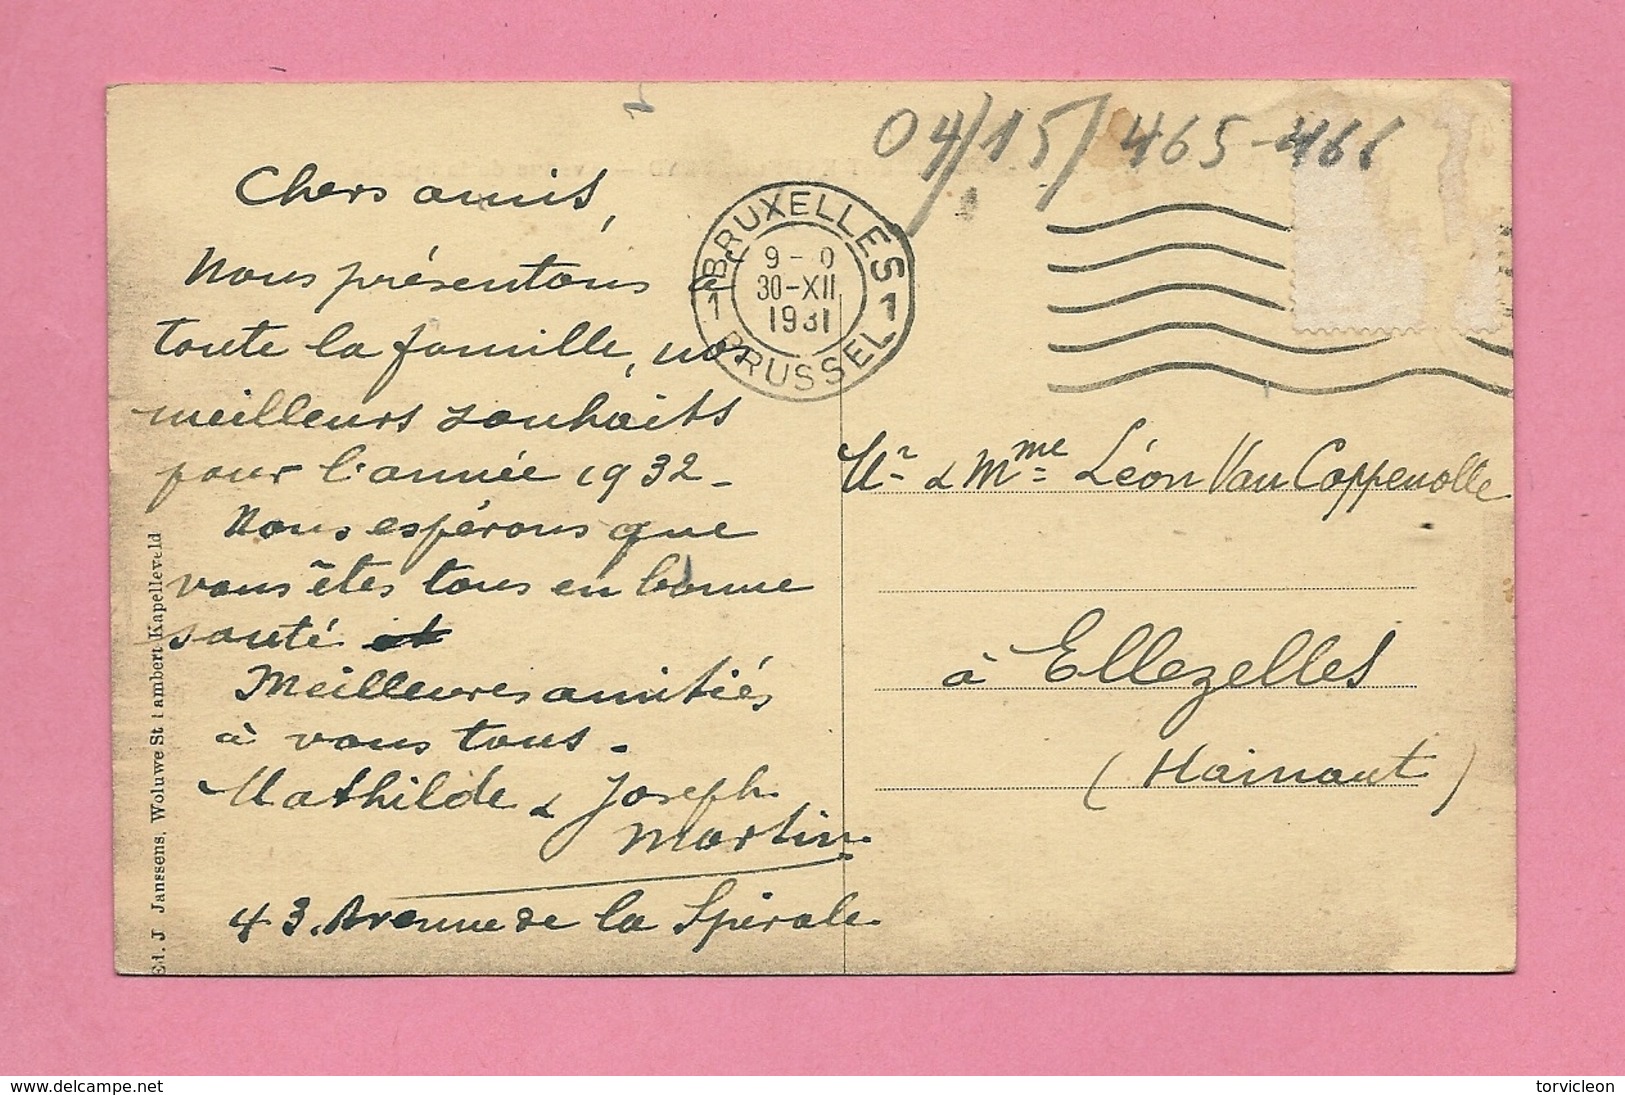 04/15/465-466
Chers amis,
Nous présentons à
toute la famille, nos
meilleurs souhaits
pour l'année 1932-
Nous espérons que
vous êtes tous en bonne
santé
Meilleures amitiés
à vous tous.
Mathilde & Joseph
Martin
43. Avenue de la Spirale
BRUXELLES
1 1
9-0
30-XII
1931
BRUSSEL
Mr & Mme Léon Van Coppenolle
à Ellezelles
(Hainaut)
Ed. J Janssens. Woluwe St Lambert Kapelleveld
www.delcampe.net
torvicleon